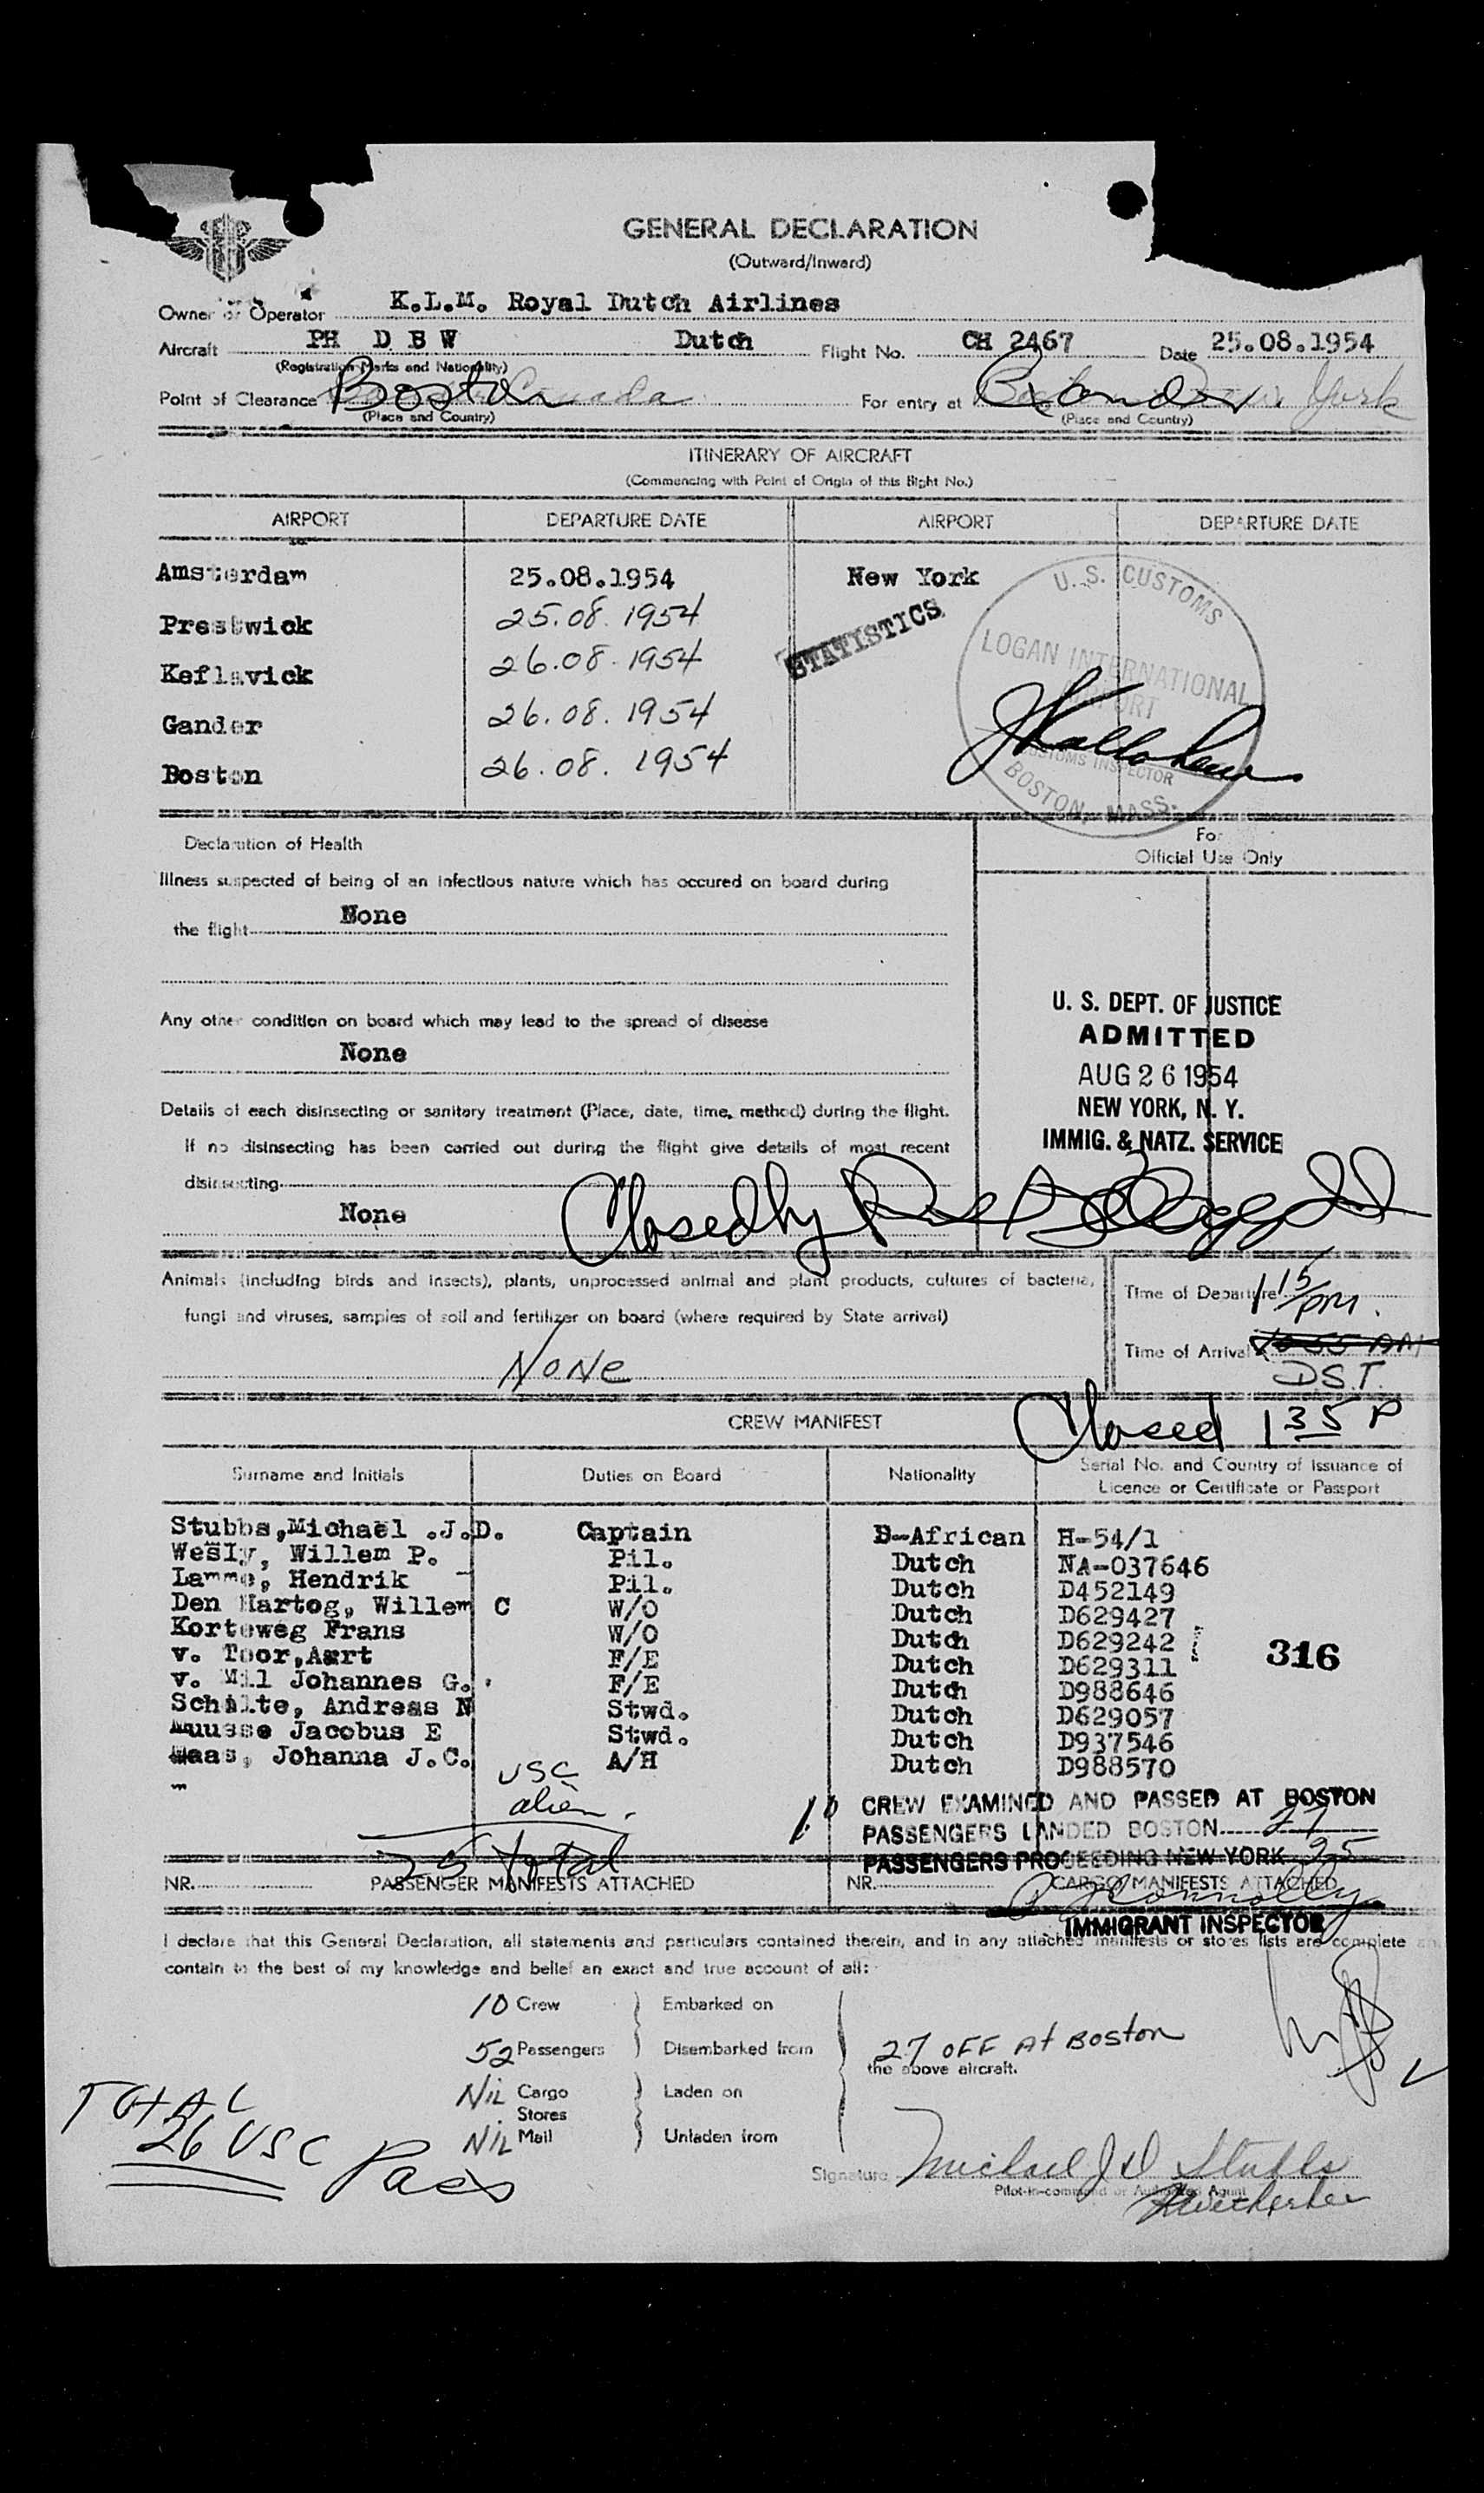 GENERAL DECLARATION
(Outward/Inward)
Owner or Operator K.L.M. Royal Dutch Airlines
Aircraft PH D B W Dutch Flight No. CH 2467 Date 25.08.1954
(Registration Marks and Nationality)
Point of Clearance Boston For entry at York
(Place and Country) (Place and Country)
ITINERARY OF AIRCRAFT
(Commencing with Point of Origin of this flight No.)
AIRPORT DEPARTURE DATE AIRPORT DEPARTURE DATE
Amsterdam 25.08.1954 New York
Prestwick 25.08.1954
Keflavick 26.08.1954
Gander 26.08.1954
Boston 26.08.1954
STATISTICS
U.S. CUSTOMS
LOGAN INTERNATIONAL
AIRPORT
CUSTOMS INSPECTOR
BOSTON, MASS.
Declaration of Health
Illness suspected of being of an infectious nature which has occured on board during
the flight None
For
Official Use Only
Any other condition on board which may lead to the spread of disease
None
U. S. DEPT. OF JUSTICE
ADMITTED
AUG 26 1954
NEW YORK, N. Y.
IMMIG. & NATZ. SERVICE
Details of each disinsecting or sanitary treatment (Place, date, time, method) during the flight.
If no disinsecting has been carried out during the flight give details of most recent
disinsecting
None
Closed by
Animals (including birds and insects), plants, unprocessed animal and plant products, cultures of bacteria,
fungi and viruses, samples of soil and fertilizer on board (where required by State arrival)
NONE
Time of Departure 1 15 PM.
Time of Arrival 10 55 AM
D.S.T.
Closed 1 35 P
CREW MANIFEST
Surname and Initials Duties on Board Nationality Serial No. and Country of Issuance of
Licence or Certificate or Passport
Stubbs,Michaël .J.D. Captain B-African H-54/1
Wesly, Willem P. Pil. Dutch NA-037646
Lamme, Hendrik Pil. Dutch D452149
Den Hartog, Willem C W/O Dutch D629427
Korteweg Frans W/O Dutch D629242
v. Toor,Aart F/E Dutch D629311
v. Mil Johannes G. F/E Dutch D988646
Schilte, Andreas N Stwd. Dutch D629057
Muusse Jacobus E Stwd. Dutch D937546
Maas, Johanna J.C. A/H Dutch D988570
316
USC
alien
25 total
10 CREW EXAMINED AND PASSED AT BOSTON
PASSENGERS LANDED BOSTON 27
PASSENGERS PROCEEDING NEW YORK 25
NR. PASSENGER MANIFESTS ATTACHED NR. CARGO MANIFESTS ATTACHED
Connolly
IMMIGRANT INSPECTOR
I declare that this General Declaration, all statements and particulars contained therein, and in any attached manifests or stores lists are complete
contain to the best of my knowledge and belief an exact and true account of all:
10 Crew Embarked on
52 Passengers Disembarked from 27 OFF At Boston
the above aircraft.
Nil Cargo Laden on
Stores
Nil Mail Unladen from
TOTAL
26 USC Pass
Signature Michael J D Stubbs
Pilot-in-command or Authorized Agent